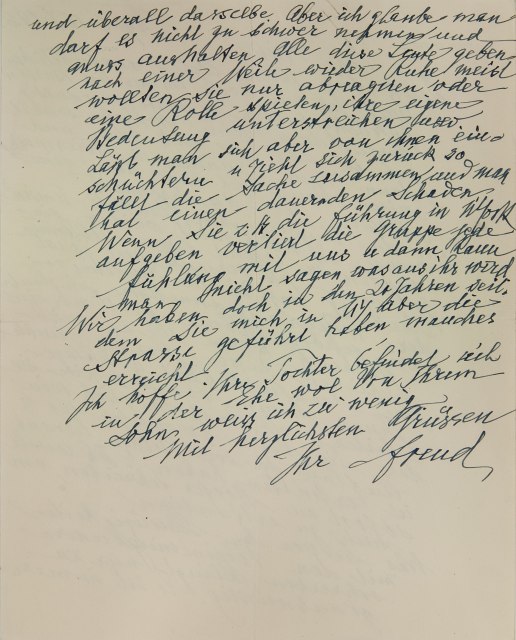 und überall dasselbe. Aber ich glaube man
darf es nicht zu schwer nehmen und
muss aushalten. Alle diese Leute geben
nach einer Weile wieder Ruhe meist
wollten sie nur abreagieren oder
eine Rolle spielen, ihre eigene
Bedeutung unterstreichen usw.
Läßt man sich aber von ihnen ein=
schüchtern u zieht sich zurück so
fällt die Sache zusammen und man
hat einen dauernden Schaden.
Wenn Sie z. B. die Führung in
aufgeben verliert die Gruppe jede
fühlung mit uns u dann kann
man nicht sagen was aus ihr wird
Wir haben doch in den 20 Jahren seit=
dem Sie mich in NY über die
Strasse geführt haben manches
erreicht.
Ich hoffe Ihre Tochter befindet sich
in der Ehe wol von Ihrem
Sohn weiss ich zu wenig
Mit herzlichsten Grüssen
Ihr Freud